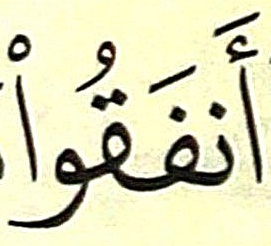 أَنفَقُوا۟